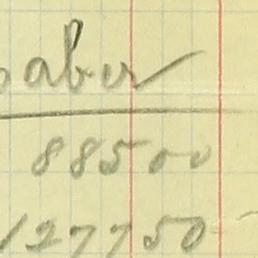 Haber
88500
127750